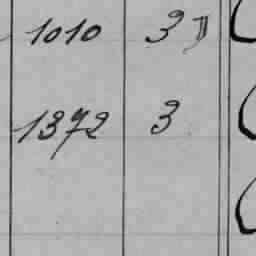 1010 3 "
1372 3